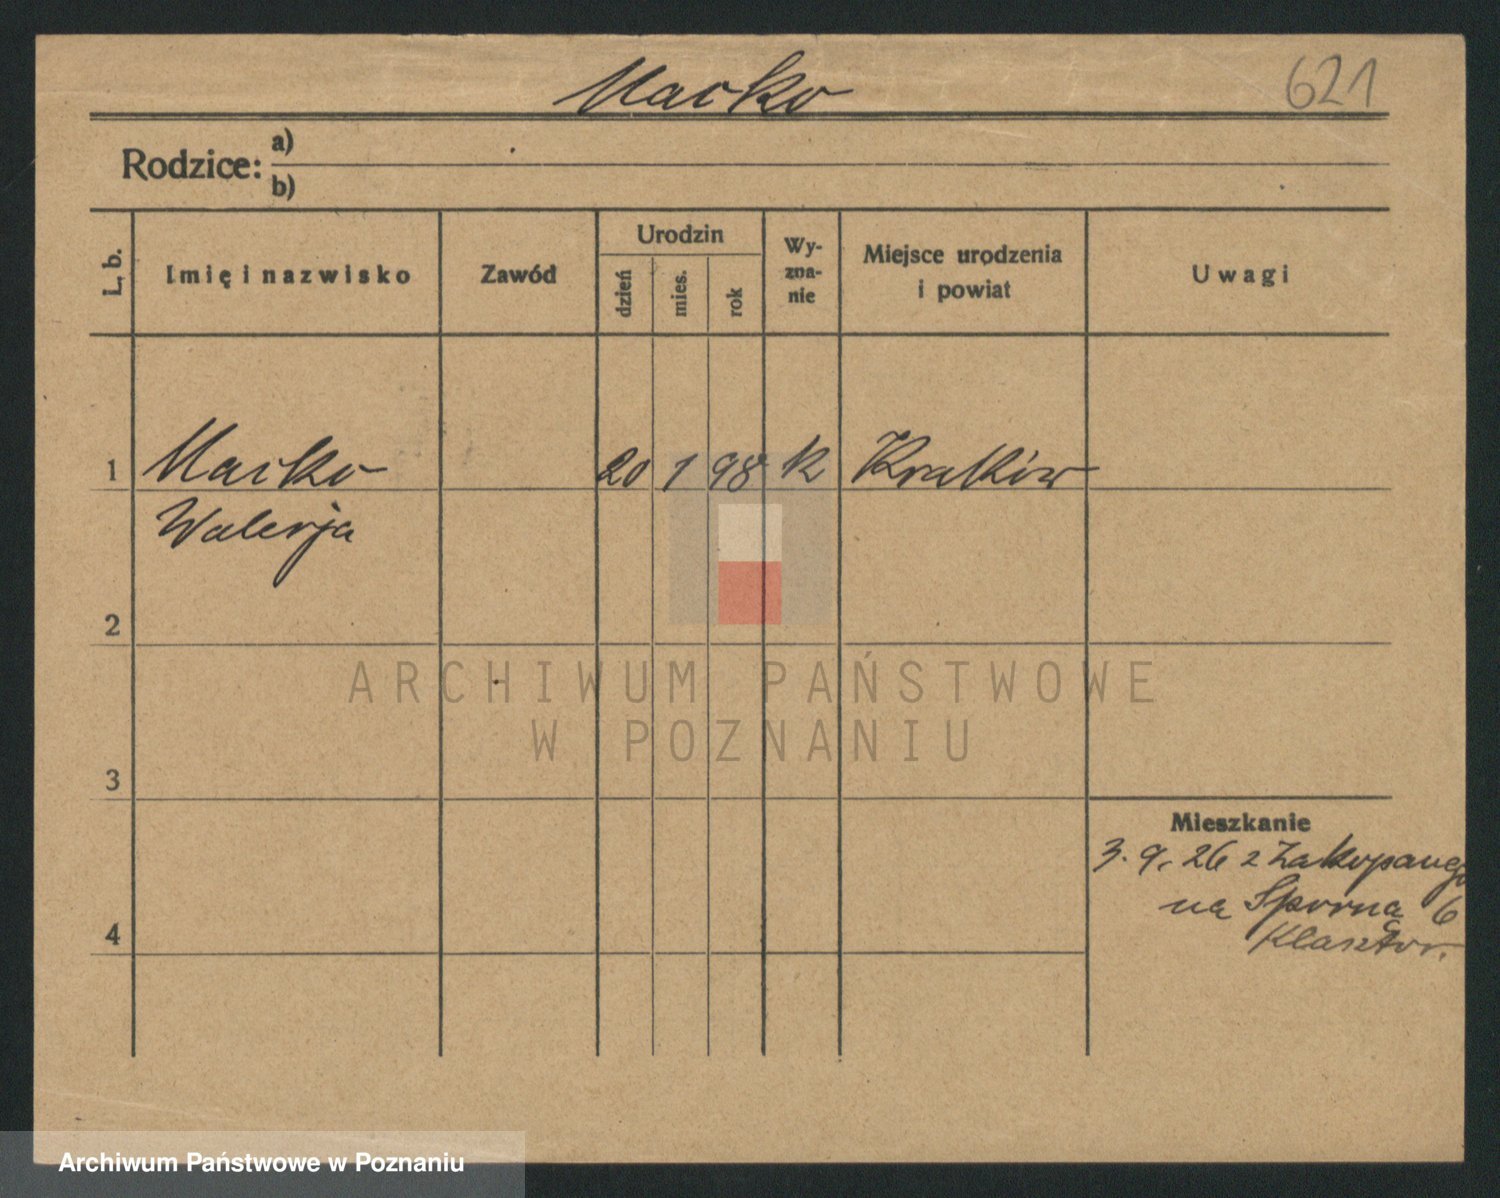 Macko
621
Rodzice:
a)
b)
L. b.
Imię i nazwisko
Zawód
Urodzin
dzień
mies.
rok
Wy-
zna-
nie
Miejsce urodzenia
i powiat
Uwagi
1 Macko 20 1 98 k Kraków
Walerja
2
3
4
Mieszkanie
3. 9. 26 z Zakopanego
na Sporną 6
Klasztor.
ARCHIWUM PAŃSTWOWE
W POZNANIU
Archiwum Państwowe w Poznaniu